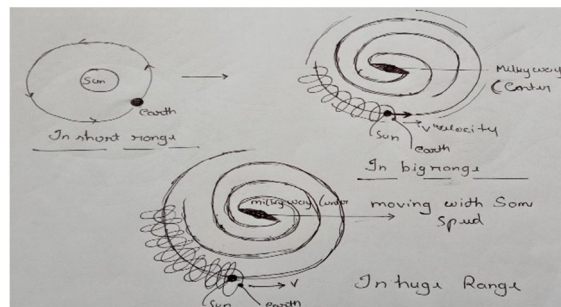 Sun
earth
In short range
Milky way
Center
Velocity
Sun
earth
In big range
milky way Center
moving with Som
Spud
V
Sun
earth
In huge Range